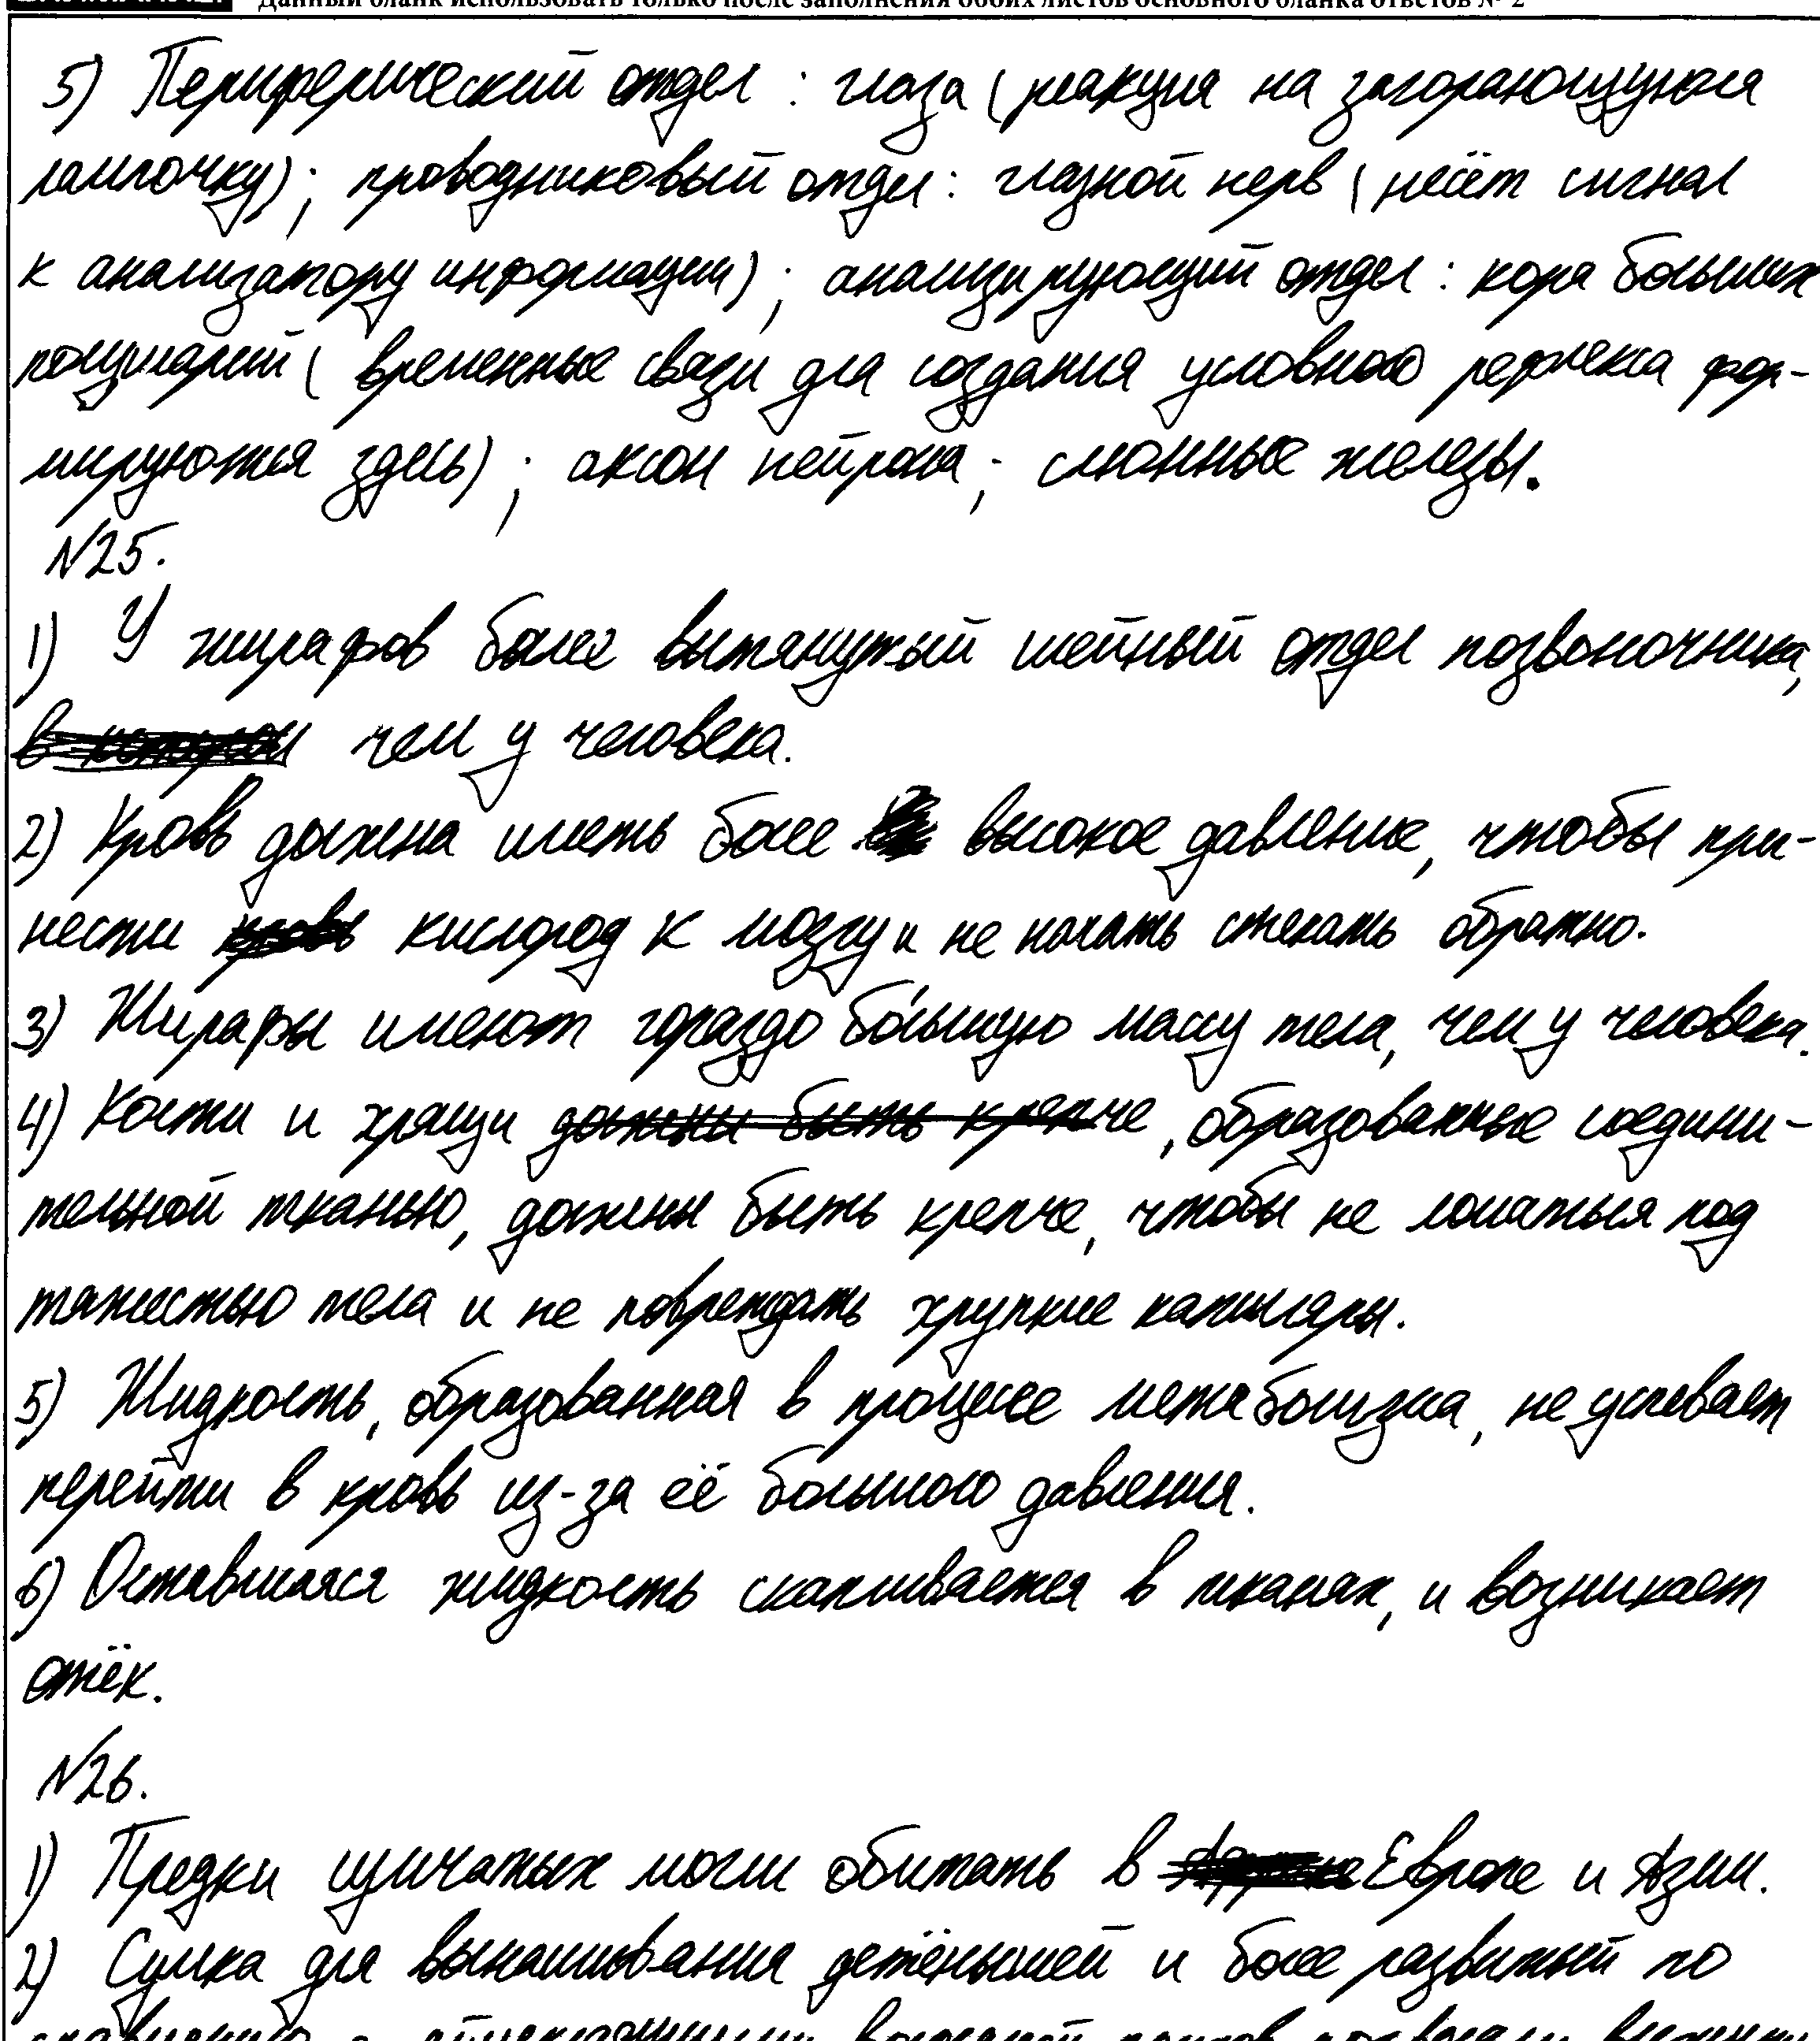 Данный бланк использовать только после заполнения обоих листов основного бланка ответов № 2
5) Периферический отдел : глаза ( реакция на загорающуюся
лампочку) ; проводниковый отдел : глазной нерв ( несёт сигнал
к анализатору информации) ; анализирующий отдел : кора больших
полушарий ( временные связи для создания условного рефлекса фор-
мируются здесь) ; аксон нейрона ; слюнные железы.
№25.
1) У жирафов более вытянутый шейный отдел позвоночника,
чем у человека.
2) Кровь должна иметь более высокое давление, чтобы при-
нести кислород к мозгу и не начать стекать обратно.
3) Жирафы имеют гораздо бо́льшую массу тела, чем у человека.
4) Кости и хрящи должны быть крепче, образованные соедини-
тельной тканью, должны быть крепче, чтобы не ломаться под
тяжестью тела и не повреждать хрупкие капилляры.
5) Жидкость, образованная в процессе метаболизма, не успевает
перейти в кровь из-за её большого давления.
6) Оставшаяся жидкость скапливается в тканях, и возникает
отёк.
№26.
1) Предки сумчатых могли обитать в Европе и Азии.
2) Сумка для вынашивания детёнышей и более развитый по